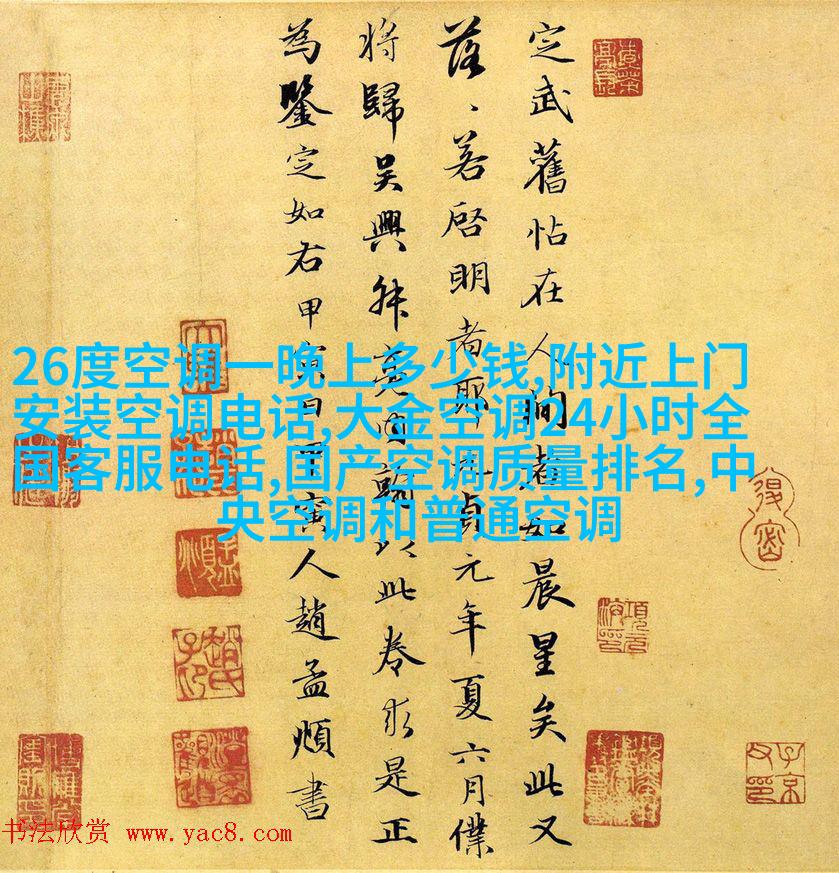 定武舊帖在人間者如晨星矣此又
落、若啓明者耶元貞元年夏六月僕
將歸吳興叔亮內翰以此卷求是正
為鑒定如右甲寅日甲寅人趙孟頫書
26度空调一晚上多少钱,附近上门
安装空调电话,大金空调24小时全
国客服电话,国产空调质量排名,中
央空调和普通空调
书法欣赏 www.yac8.com